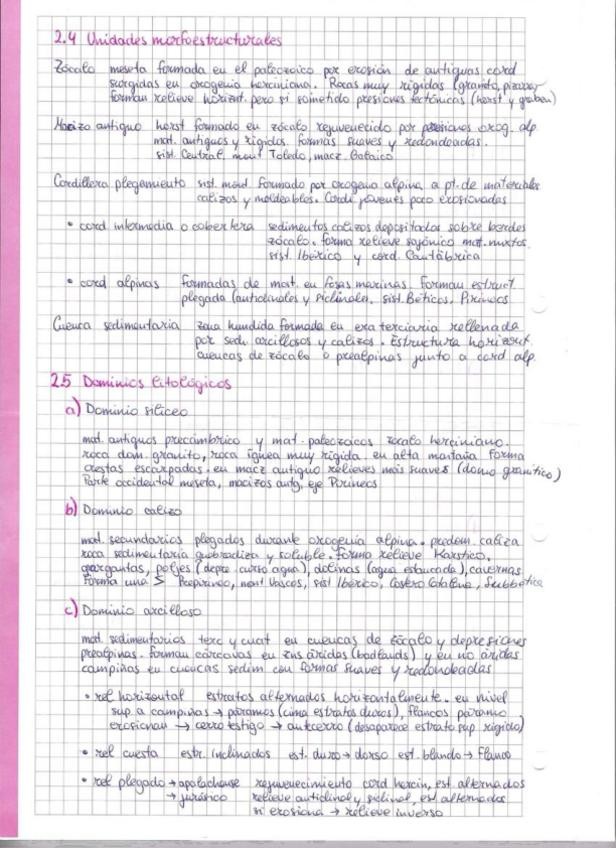 2.4 Unidades morfoestructurales
Zócalo meseta formada en el paleozoico por erosión de antiguas cord
surgidas en orogenia herciniana. Rocas muy rígidas (granito, pizarra)
forman relieve horizont. pero si sometido presiones tectónicas (horst y graben)
Macizo antiguo horst formado en zócalo rejuvenecido por presiones orog. alp.
mat. antiguos y rígidos. formas suaves y redondeadas.
sist. Central, mont Toledo, macz. Galaico
Cordillera plegamiento sist. mont. formado por orogenia alpina, a pt. de materiales
calizos y moldeables. Cord. jóvenes poco erosionadas
• cord. intermedia o cobertera sedimentos calizos depositados sobre bordes
zócalo. forma relieve sajónico mat. mixtos.
sist. Ibérico y cord. Cantábrica
• cord alpinas formadas de mat. en fosas marinas. Forman estruct.
plegada (anticlinales y siclinales. sist. Béticos, Pirineos
Cuenca sedimentaria zona hundida formada en era terciaria rellenada
por sedi. arcillosos y calizos. Estructura horizont.
cuencas de zócalo o prealpinas junto a cord alp.
2.5 Dominios litológicos
a) Dominio silíceo
mat. antiguos precámbrico y mat. paleozoicos zócalo herciniano.
roca dom. granito, roca ígnea muy rígida. en alta montaña forma
crestas escarpadas. en macz antiguo relieves más suaves (domo granítico)
Parte occidental meseta, macizos antg, eje Pirineos
b) Dominio calizo
mat. secundarios plegados durante orogenia alpina. predom. caliza
roca sedimentaria quebradiza y soluble. forma relieve Karstico,
gargantas, poljes (depre. curso agua), dolinas (agua estancada), cavernas
Forma una > Prepirineo, mont Vascos, sist Ibérico, Costero Catalana, Subbética
c) Dominio arcilloso
mat. sedimentarios terc y cuat en cuencas de zócalo y depresiones
prealpinas. forman cárcavas en zns áridas (badlands) y en no áridas
campiñas en cuencas sedim con formas suaves y redondeadas
• rel horizontal estratos alternados horizontalmente. en nivel
sup. a campiñas → páramos (cima estratos duros), flancos páramo
erosionan → cerro testigo → antecerro (desaparece estrato sup rígido)
• rel cuesta estr. inclinados est. duro → dorso est. blando → flanco
• rel plegado → apalachense rejuvenecimiento cord hercin, est. alternados
→ jurásico relieve anticlinal y siclinal, est alternados
si erosiona → relieve inverso